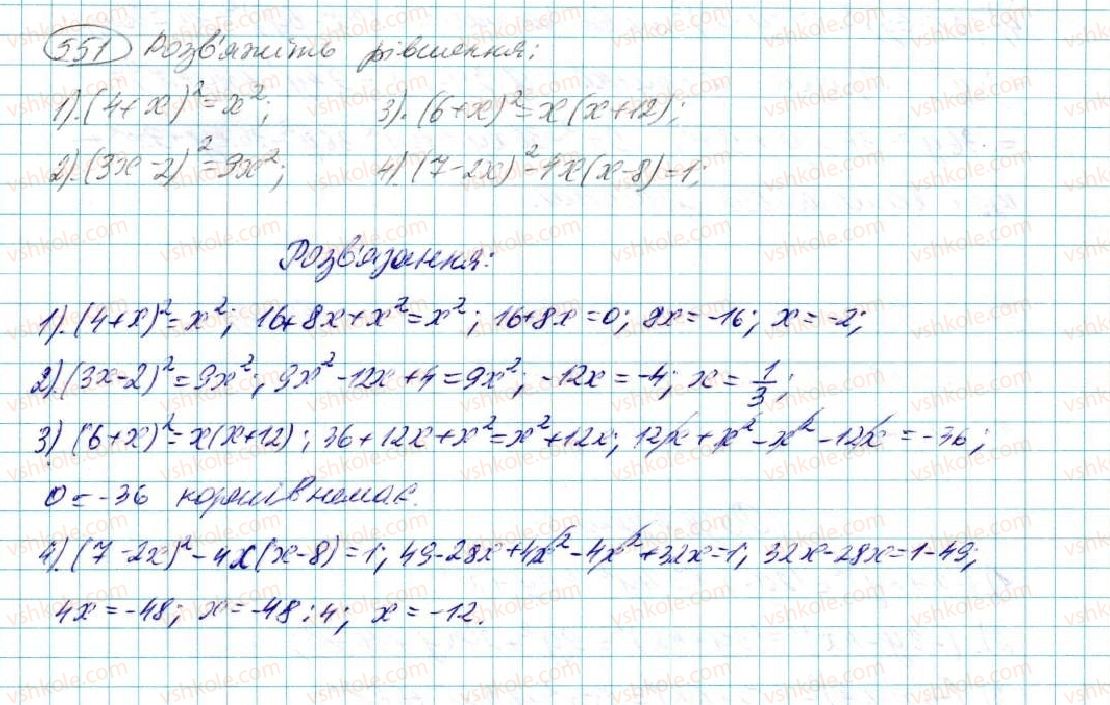 551 Розв'яжіть рівняння:
1). (4+x)²=x²; 3). (6+x)²=x(x+12);
2). (3x-2)²=9x²; 4). (7-2x)²-4x(x-8)=1;
Розв'язання:
1). (4+x)²=x²; 16+8x+x²=x²; 16+8x=0; 8x=-16; x=-2;
2). (3x-2)²=9x²; 9x²-12x+4=9x²; -12x=-4; x=1/3;
3) (6+x)²=x(x+12); 36+12x+x²=x²+12x; 12x+x²-x²-12x=-36;
0=-36 коренів немає.
4). (7-2x)²-4x(x-8)=1; 49-28x+4x²-4x²+32x=1; 32x-28x=1-49;
4x=-48; x=-48:4; x=-12.
vshkole.com